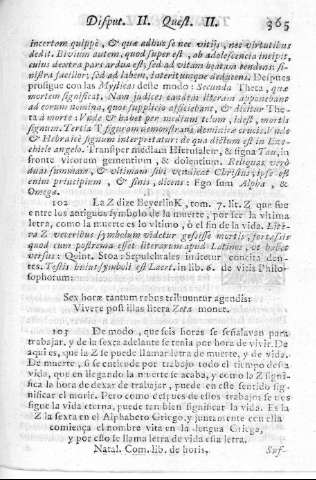 Disput. II. Quæst. II. 365
incertom quippè, & quæ adhuc se nec vitijs, nec virtutibus
dedit. Bivium autem, quod superest, ab adolescentia incipit,
cuius dextera pars ardua est, sed ad vitam beatam tendens: si-
nistra facilior, sed ad labem, interitumque deducens. Despues
prosigue con las Mysticas deste modo: Secunda Theta, quæ
mortem significat. Nam judices eandem literam apponebant
ad eorum nomina, quos supplicio afficiebant, & dicitur The-
ta à morte: Unde & habet per medium telum, idest, mortis
signum. Tertia T figuram demonstrans dominicæ crucis. Unde
& Hebraicè signum interpretatur: de qua dictum est in Eze-
chiele angelo. Transi per mediam Hierusalem, & signa Tau, in
fronte vicorum gementium, & dolentium. Reliquas verò
duas summam, & ultimam sibi vendicat Christus; ipse est
enim principium, & finis, dicens: Ego sum Alpha, &
Omega.
102 La Z dize Beyerlink, tom. 7. lit. Z que fue
entre los antiguos symbolo de la muerte, por ser la vltima
letra, como la muerte es lo vltimo, ò el fin de la vida. Lite-
ra Z veteribus symbolum videtur gessisse mortis, fortassis
quod cum postrema esset literarum apud Latinos, ut habet
versus: Quint. Stoa: Sepulchrales iniicitur concita den-
tes. Testis huius symboli est Laert. in lib. 6. de vitis Philo-
sophorum:
Sex horæ tantum rebus tribuuntur agendis:
Vivere post illas litera Zeta monet.
103 De modo, que seis horas se señalavan para
trabajar, y de la sexta adelante se tenia por hora de vivir. De
aqui es, que la Z se puede llamar letra de muerte, y de vida.
De muerte, si se entiende por trabajo todo el tiempo desta
vida, que en llegando la muerte se acaba, y como la Z signi-
fica la hora de dexar de trabajar, puede en este sentido sig-
nificar el morir. Pero como despues de estos trabajos se nos
sigue la vida eterna, puede tambien significar la vida. Es la
Z la sexta en el Alphabeto Griego, y juntamente con ella
comiença el nombre vita en la lengua Griega,
y por esso se llama letra de vida esta letra.
Natal. Com. lib. de horis, Suf-